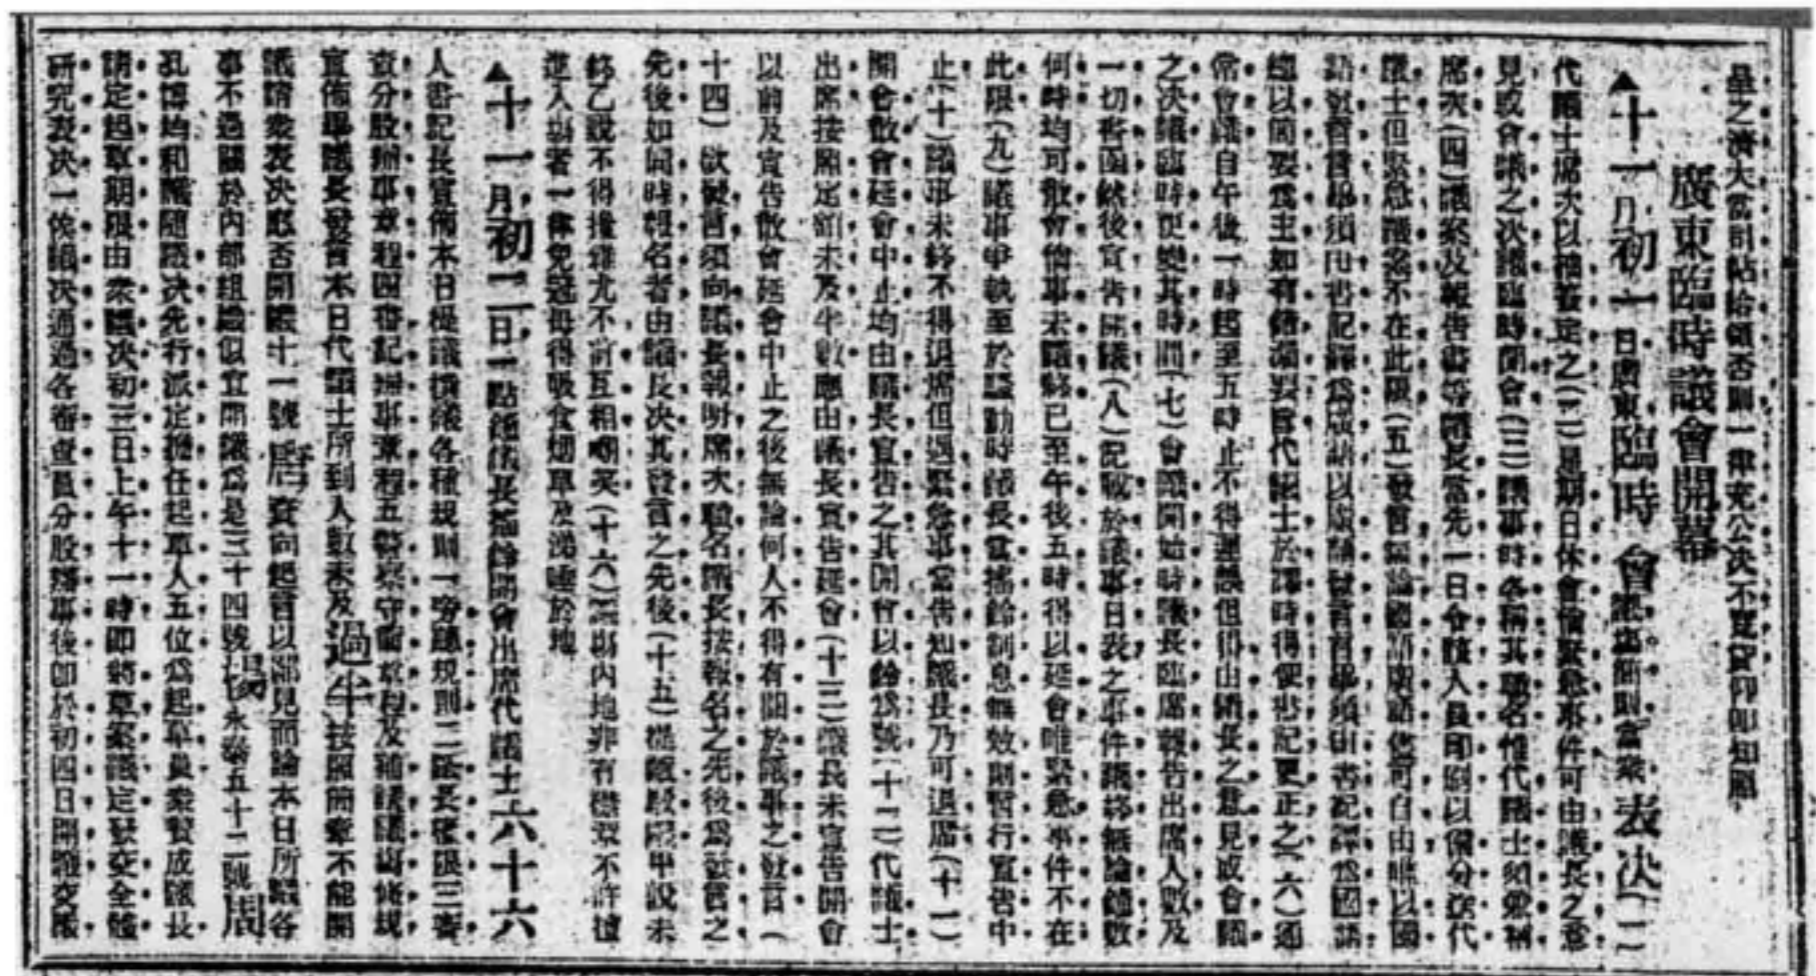 大當引帖給領否則一律充公决不寬貸仰卽知照
廣東臨時議會開幕
▲十一月初一日廣東臨時會議當衆表决(一)
代議士席次以抽簽定之(二)星期日休會倘緊急事件可由議長之意
見或會議之次議臨時開會(三)議事時各稱其職名惟代議士須兼稱
席次(四)議案及報告書等議長當先一日令該人員印刷以備分送代
議士但緊急議案不在此限(五)發言無論國語廣話俱可自由惟以國
語發言者須由書記譯爲廣話以廣話發言者須由書記譯爲國語
總以簡要爲主如有錯漏發言代議士於譯時得使書記更正之(六)通
常會議自午後一時起至五時止不得遲誤但得由議長之意見或會議
之决議臨時更變其時間(七)會議開始時議長臨席報告出席人數及
一切書函然後宣告開議(八)記載於議事日表之事件議終無論鐘數
何時均可散會倘事未議終已至午後五時得以延會唯緊急事件不在
此限(九)議事爭執至於譟動時議長當搖鈴訓息無效則暫行宣告中
止(十)議事未終不得退席但遇緊急事當告知議長乃可退席(十一)
開會散會延會中止均由議長宣告之其開會以鈴爲號(十二)代議士
出席按照定額未及半數應由議長宣告延會(十三)議長未宣告開會
以前及宣告散會延會中止之後無論何人不得有關於議事之發言(
十四)欲發言須向議長報明席次職名議長按報名之先後爲發言之
先後如同時報名者由議長决其發言之先後(十五)提議發議甲說未
終乙說不得攙雜尤不言互相嘲笑(十六)議塲內地非有襟章不許擅
進入塲者一律免冠毋得吸食烟草及涕唾於地
▲十一月初二日一點鐘議長搖鈴開會出席代議士六十六
人書記長宣佈本日提議擴議各種規則一旁聽規則二議長權限三審
查分股辦事章程四書記辦事章程五警察守衛章程及補議議塲條規
宣佈畢議長發言本日代議士所到人數未及過半按照開章不能開
議請衆表决應否開議十一號唐 向起言以鄙見而論本日所議各
事不過關於內部組織似宜開議爲是三十四號楊永泰五十二號周
孔博均和議隨議决先行派定擔任起草人五位爲起草員衆贊成議長
請定起草期限由衆議决初三日上午十一時卽將草案議定發交全體
研究表决一俟議决通過各審查員分股辦事後卽於初四日開議交議